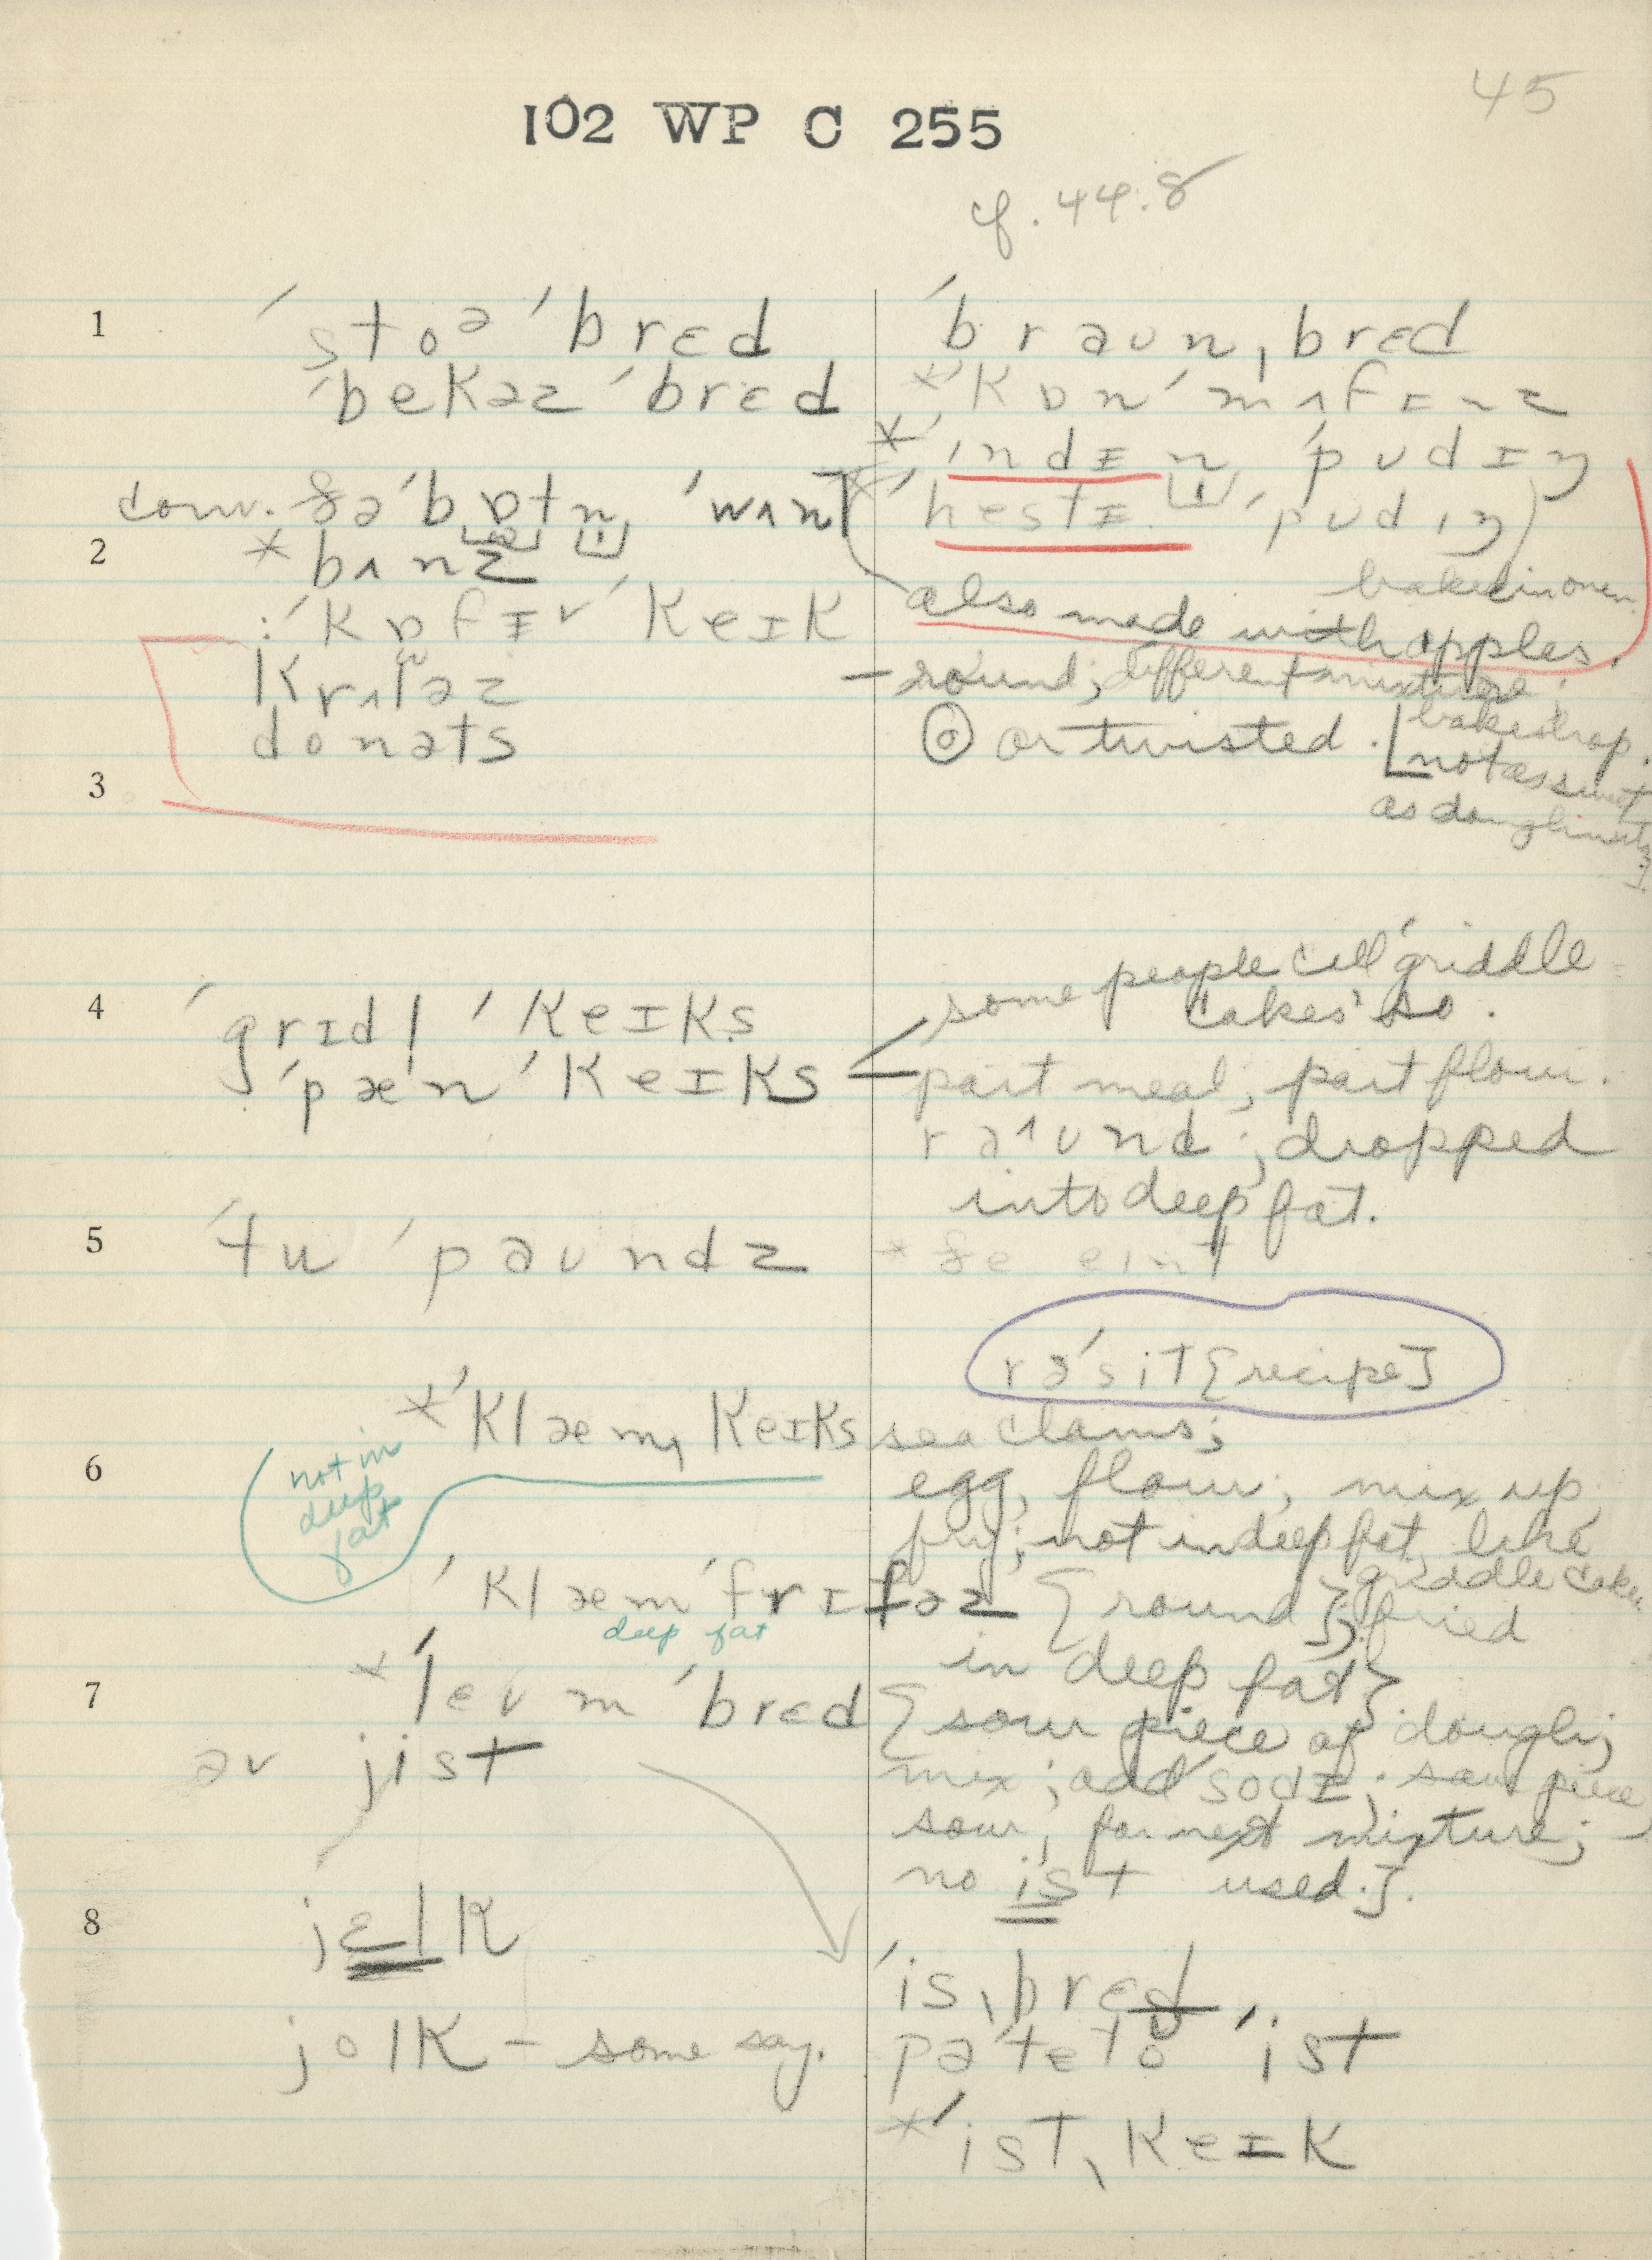 45
102 WP C 255
cf. 44.8
1
ˈstoə ˈbrɛd
ˈbekəz ˈbrɛd
ˈbraʊn ˌbrɛd
*ˈkɒn ˈmʌfɪnz
*ˈɪndɪn ˈpʊdɪŋ
*ˈhestɪ ˈpʊdɪŋ)
conv.
ˈwʌn
2
* bʌnz
ˈkɒfɪ ˈkeɪk
baked in oven
also made with apples.
krʌləz
– round; different mixture.
donəts
or twisted.
[baker's trap.
not as sweet
as doughnuts].
3
some people call 'griddle
cakes' so.
4
ˈgrɪdl ˈkeɪks
ˈpæn ˈkeɪks
part meal; part flour.
raʊnd; dropped
into deep fat.
5
ˈtu ˈpaʊndz
rəˈsit [recipe]
*ˈklæm ˌkeɪks
sea clams;
6
not in
deep
fat
egg, flour; mix up,
fry; not in deep fat, like
griddle cake
ˈklæm ˈfrɪtəz {round}; fried
deep fat
in deep fat}
7
*ˈleʊm ˈbrɛd
{sour piece of dough;
əv jist
mix; add sodɪ; save piece
sour, for next mixture;
no ist used.}.
8
jɛlk
ˈis ˌbrɛd
jolk – some say.
pəˈteto ˈist
*ˈist ˌkeɪk